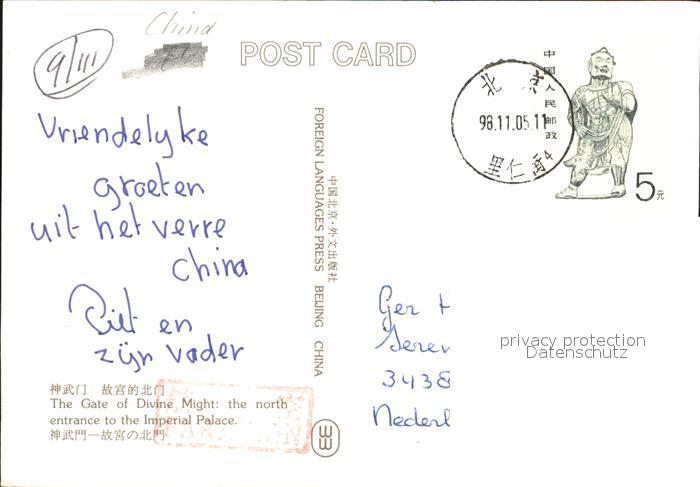 China
9/III
POST CARD
中国人民邮政
北京
98.11.05.11
4
5元
Vriendelyke
groeten
uit het verre
China
Piet en
zijn vader
FOREIGN LANGUAGES PRESS BEIJING CHINA
中国北京·外文出版社
Ger
3438
Nederl
privacy protection
Datenschutz
神武门 故宫的北门
The Gate of Divine Might: the north
entrance to the Imperial Palace.
神武門—故宮の北門